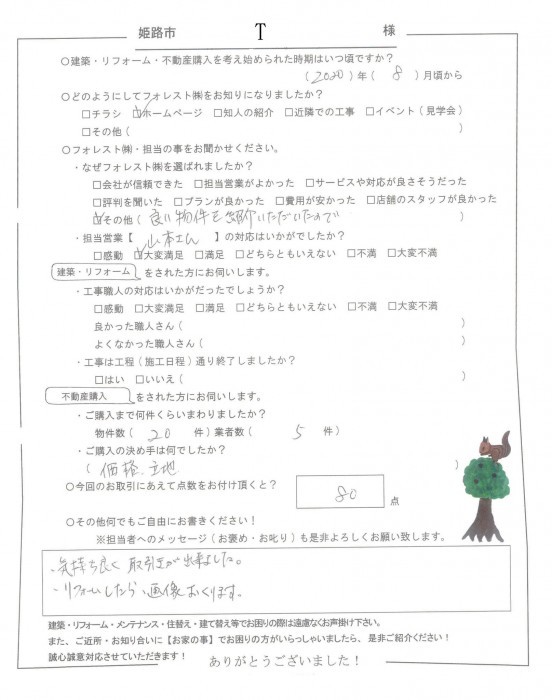 姫路市 T 様
○建築・リフォーム・不動産購入を考え始められた時期はいつ頃ですか？
(2020)年( 8 )月頃から
○どのようにしてフォレスト㈱をお知りになりましたか？
□チラシ ☑ホームページ □知人の紹介 □近隣での工事 □イベント(見学会)
□その他( )
○フォレスト㈱・担当の事をお聞かせください。
・なぜフォレスト㈱を選ばれましたか？
□会社が信頼できた □担当営業がよかった □サービスや対応が良さそうだった
□評判を聞いた □プランが良かった □費用が安かった □店舗のスタッフが良かった
☑その他(良い物件を紹介いただいたので )
・担当営業【 山本さん 】の対応はいかがでしたか？
□感動 ☑大変満足 □満足 □どちらともいえない □不満 □大変不満
建築・リフォーム をされた方にお伺いします。
・工事職人の対応はいかがだったでしょうか？
□感動 □大変満足 □満足 □どちらともいえない □不満 □大変不満
良かった職人さん( )
よくなかった職人さん( )
・工事は工程(施工日程)通り終了しましたか？
□はい □いいえ( )
不動産購入 をされた方にお伺いします。
・ご購入まで何件くらいまわりましたか？
物件数( 20 件)業者数( 5 件)
・ご購入の決め手は何でしたか？
( 価格、立地 )
○今回のお取引にあえて点数をお付け頂くと？ 80 点
○その他何でもご自由にお書きください！
※担当者へのメッセージ(お褒め・お叱り)も是非よろしくお願い致します。
・気持ち良く取引きが出来ました。
・リフォームしたら、画像おくります。
建築・リフォーム・メンテナンス・住替え・建て替え等でお困りの際は遠慮なくお声掛け下さい。
また、ご近所・お知り合いに【お家の事】でお困りの方がいらっしゃいましたら、是非ご紹介ください！
誠心誠意対応させていただきます！ ありがとうございました！